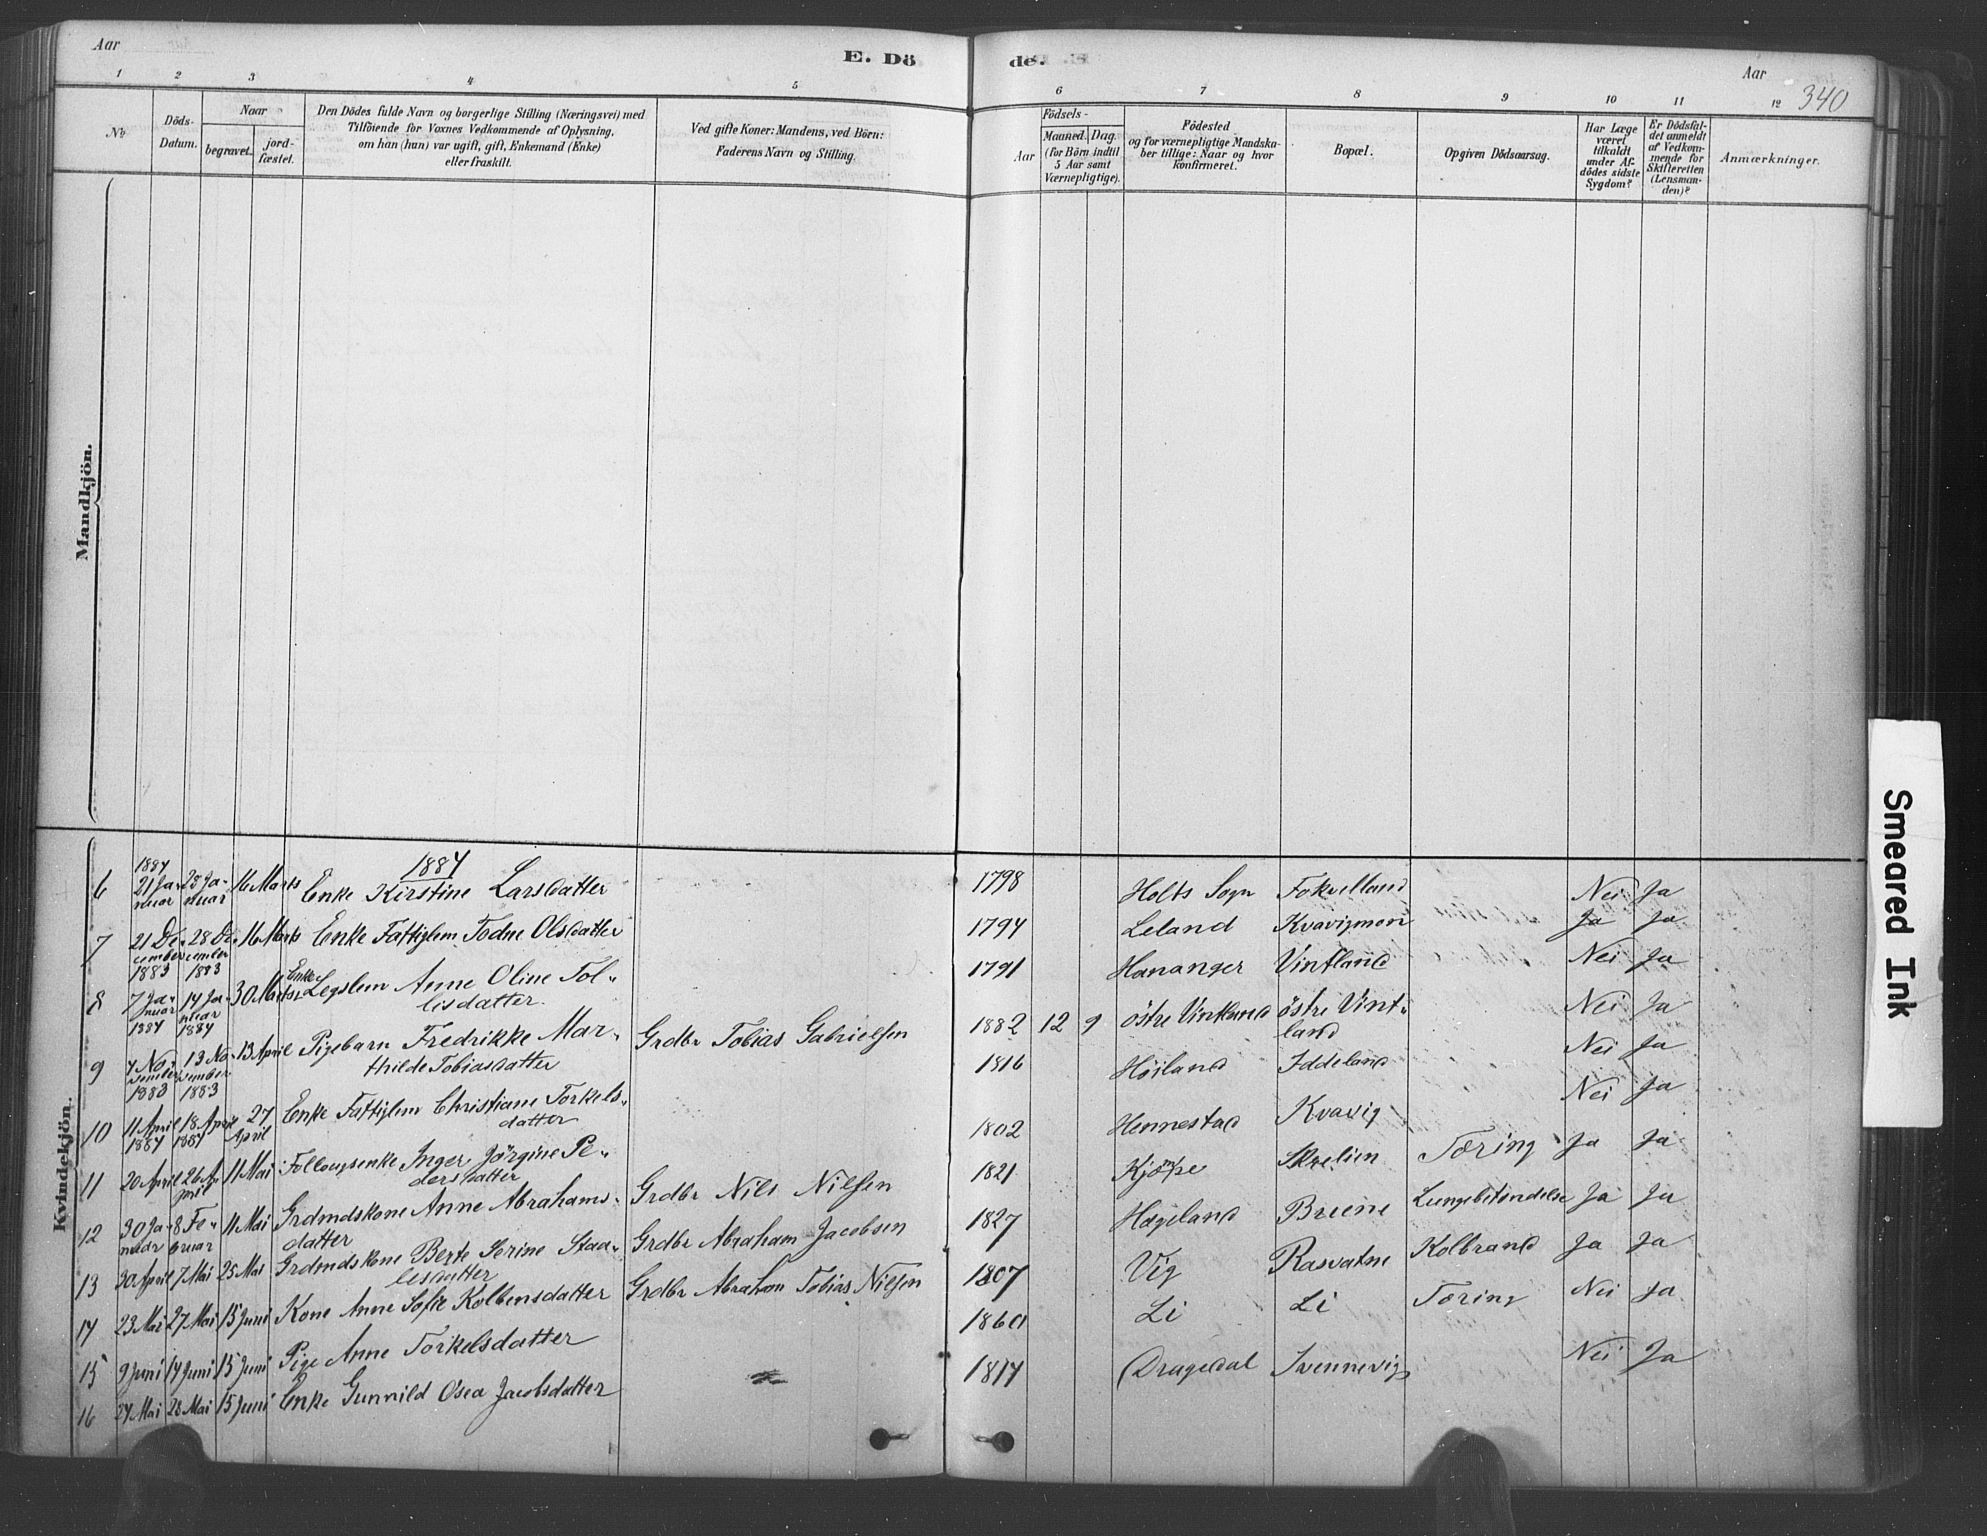 Aar
E. Dö
de.
Aar
340
1 2 3 4 5 6 7 8 9 10 11 12
No
Döds-
Datum.
Naar
begravet.
jord-
fæstet.
Den Dödes fulde Navn og borgerlige Stilling (Næringsvei) med
Tilföiende for Voxnes Vedkommende af Oplysning,
om han (hun) var ugift, gift, Enkemand (Enke)
eller fraskilt.
Ved gifte Koner: Mandens, ved Börn:
Faderens Navn og Stilling.
Födsels-
Aar
Maaned. Dag.
(for Börn indtil
5 Aar samt
Værnepligtige).
Födested
og for værnepligtige Mandska-
ber tillige: Naar og hvor
konfirmeret.
Bopæl.
Opgiven Dödsaarsag.
Har Læge
været
tilkaldt
under Af-
dödes sidste
Sygdom?
Er Dödsfal-
det anmeldt
af Vedkom-
mende for
Skifteretten
(Lensman-
den)?
Anmærkninger.
Mandkjön.
Kvindekjön.
1884
6 1884 21 Ja-nuar 28 Ja-nuar 16 Marts Enke Kirstine Larsdatter 1798 Holts Sogn Nei Ja
7 21 De-cember 1883 28 De-cember 1883 16 Marts Enke Fattiglem Todne Olsdatter 1794 Leland Kvavigmoen Ja Ja
8 7 Ja-nuar 1884 14 Ja-nuar 1884 30 Marts Enke Legslem Anne Oline Tol-
lisdatter. 1791 Hananger Vintland Nei Ja
9 4 No-vember 1883 13 No-vember 1883 13 April Pigebarn Fredrikke Mar-
thilde Tobiasdatter Grdbr Tobias Gabrielsen 1882 12 9 östre Vintland östre Vint-
land Nei Ja
10 11 April 1884 18 April 1884 27 April Enke Fattiglem Christiane Torkels-
datter 1816 Höiland Iddeland Nei Ja
11 20 April 26 April 11 Mai Follougsenke Inger Jörgine Pe-
dersdatter 1802 Hennestad Kvavig Nei Ja
12 30 Ja-nuar 8 Fe-bruar 11 Mai Grdmdskone Anne Abrahams-
datter Grdbr Nils Nilsen 1821 Skrelien Tæring Ja Ja
13 30 April 7 Mai 25 Mai Grdmdskone Berte Serine Staa-
lesdatter Grdbr Abraham Jacobsen 1827 Hægeland Briene Lungebetændelse Ja Ja
14 23 Mai 27 Mai 15 Juni Kone Anne Sofie Kolbensdatter Grdbr Abraham Tobias Nilsen 1807 Vig Rasvatne Kolbrand Ja Ja
15 9 Juni 14 Juni 15 Juni Pige Anne Torkelsdatter 1860 Li Li Tæring Nei Ja
16 24 Mai 28 Mai 15 Juni Enke Gunnild Osea Jacobsdatter 1814 Dragedal Svennevig Nei Ja
Smeared Ink